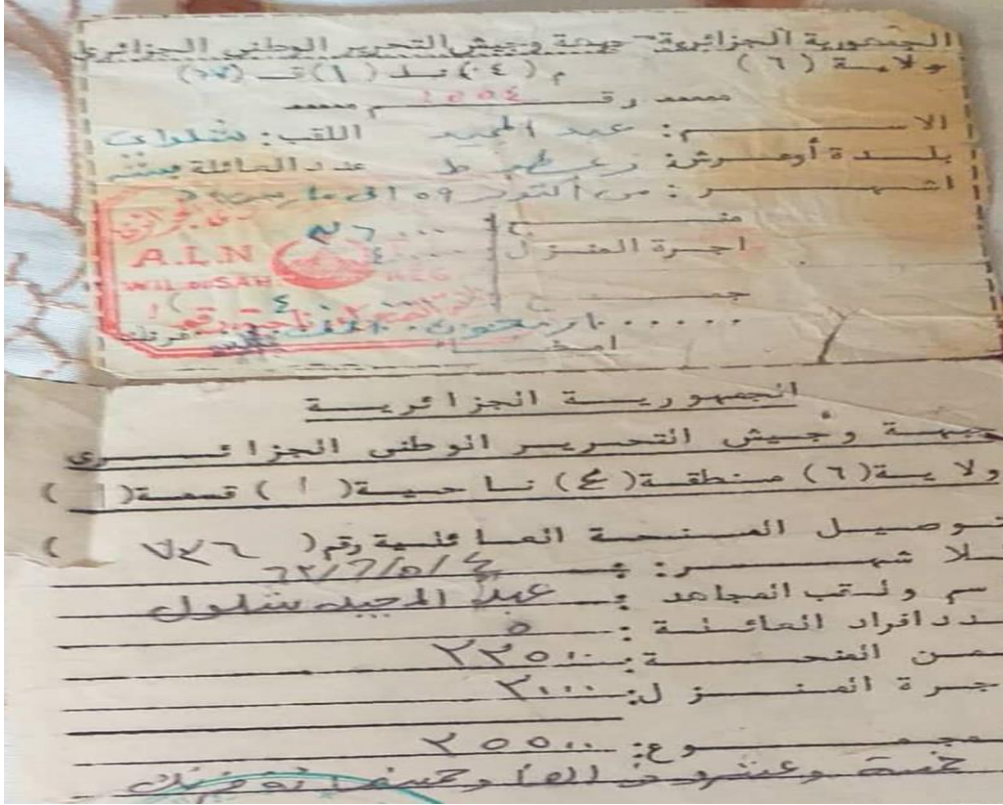 الجمهورية الجزائرية - جبهة وجيش التحرير الوطني الجزائري
ولاية (٦) م (٠٤) نا (١) ق
رقم ١٥٥٤
الاسم: عبد المجيد اللقب:
بلدة أو عرش: عدد العائلة ستة
اشهر: من أكتوبر ٥٩ الى مارس
منح ٣٦٠٠٠
اجرة المنزل ٤٠٠٠
A.L.N
جمع
اربعون الف فرنك
امضاء
الجمهورية الجزائرية
جبهة وجيش التحرير الوطني الجزائري
ولاية (٦) منطقة (٤) ناحية (١) قسمة (١)
توصيل المنحة العائلية رقم (٧٢٦)
لاشهر: ٦٢/٦/٥/٤
سم ولقب المجاهد: عبد المجيد شلول
دد افراد العائلة: ٥
من المنحة: ٢٢٥٠٠
جرة المنزل: ٣٠٠٠
مجموع: ٢٥٥٠٠
خمسة وعشرون الفا وخمسمائة فرنك